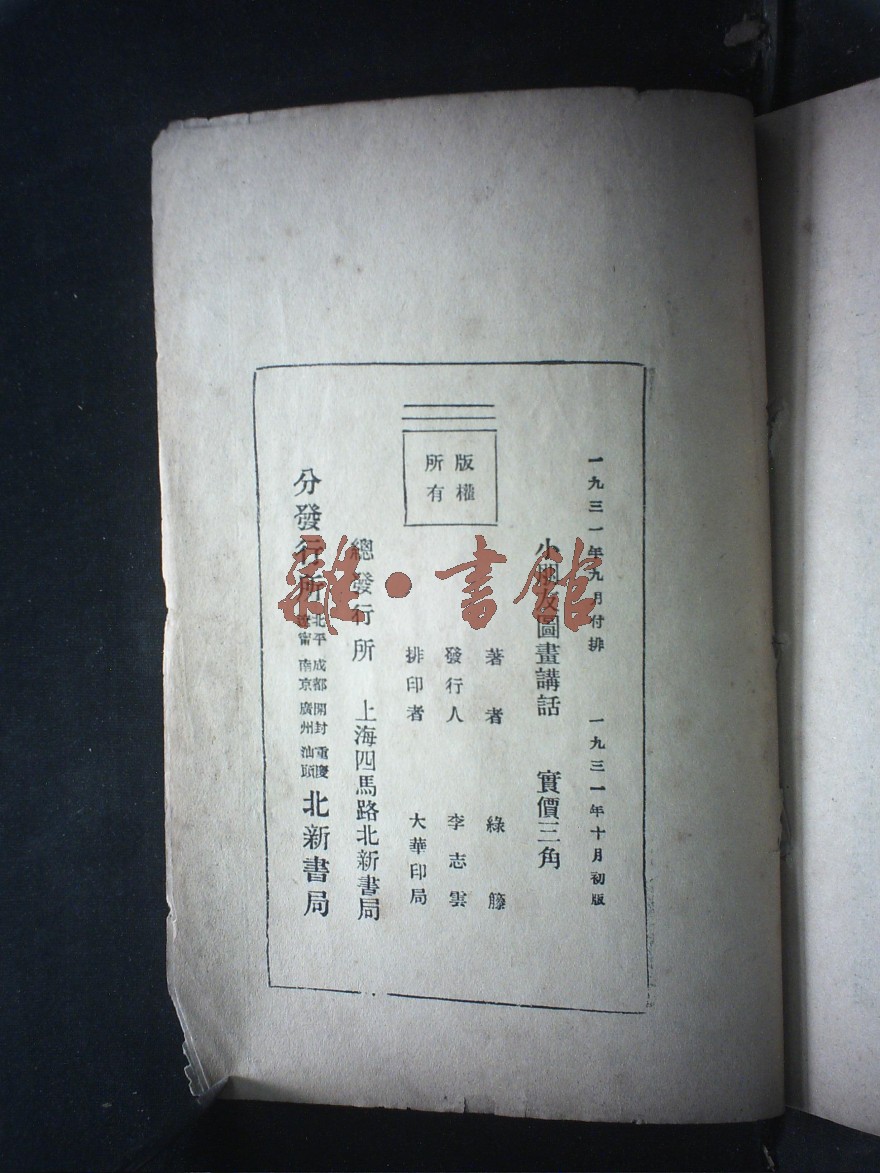 一九三一年九月付排 一九三一年十月初版
小朋友圖畫講話 實價三角
版權
所有
著者 綠籐
發行人 李志雲
排印者 大華印局
總發行所 上海四馬路北新書局
分發行所 北平 成都 開封 重慶
南京 廣州 汕頭
北新書局
雜·書館